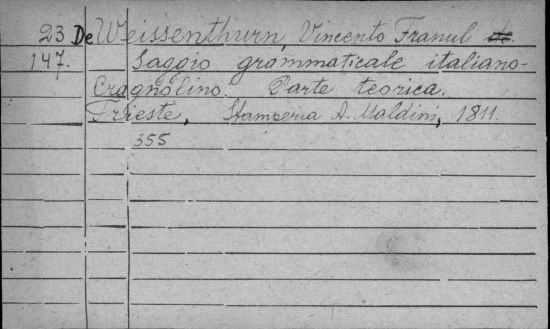 23 De Weissenthurn, Vincento Franul de
147. Saggio grammaticale italiano-
Cragnolino. Parte teorica.
Trieste, Stamperia A. Maldini, 1811.
355